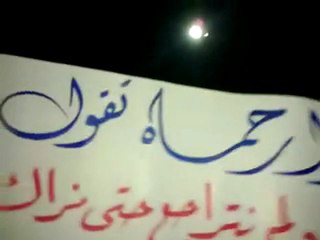 ار حماه تقول
ولم نتراجع حتى نراك